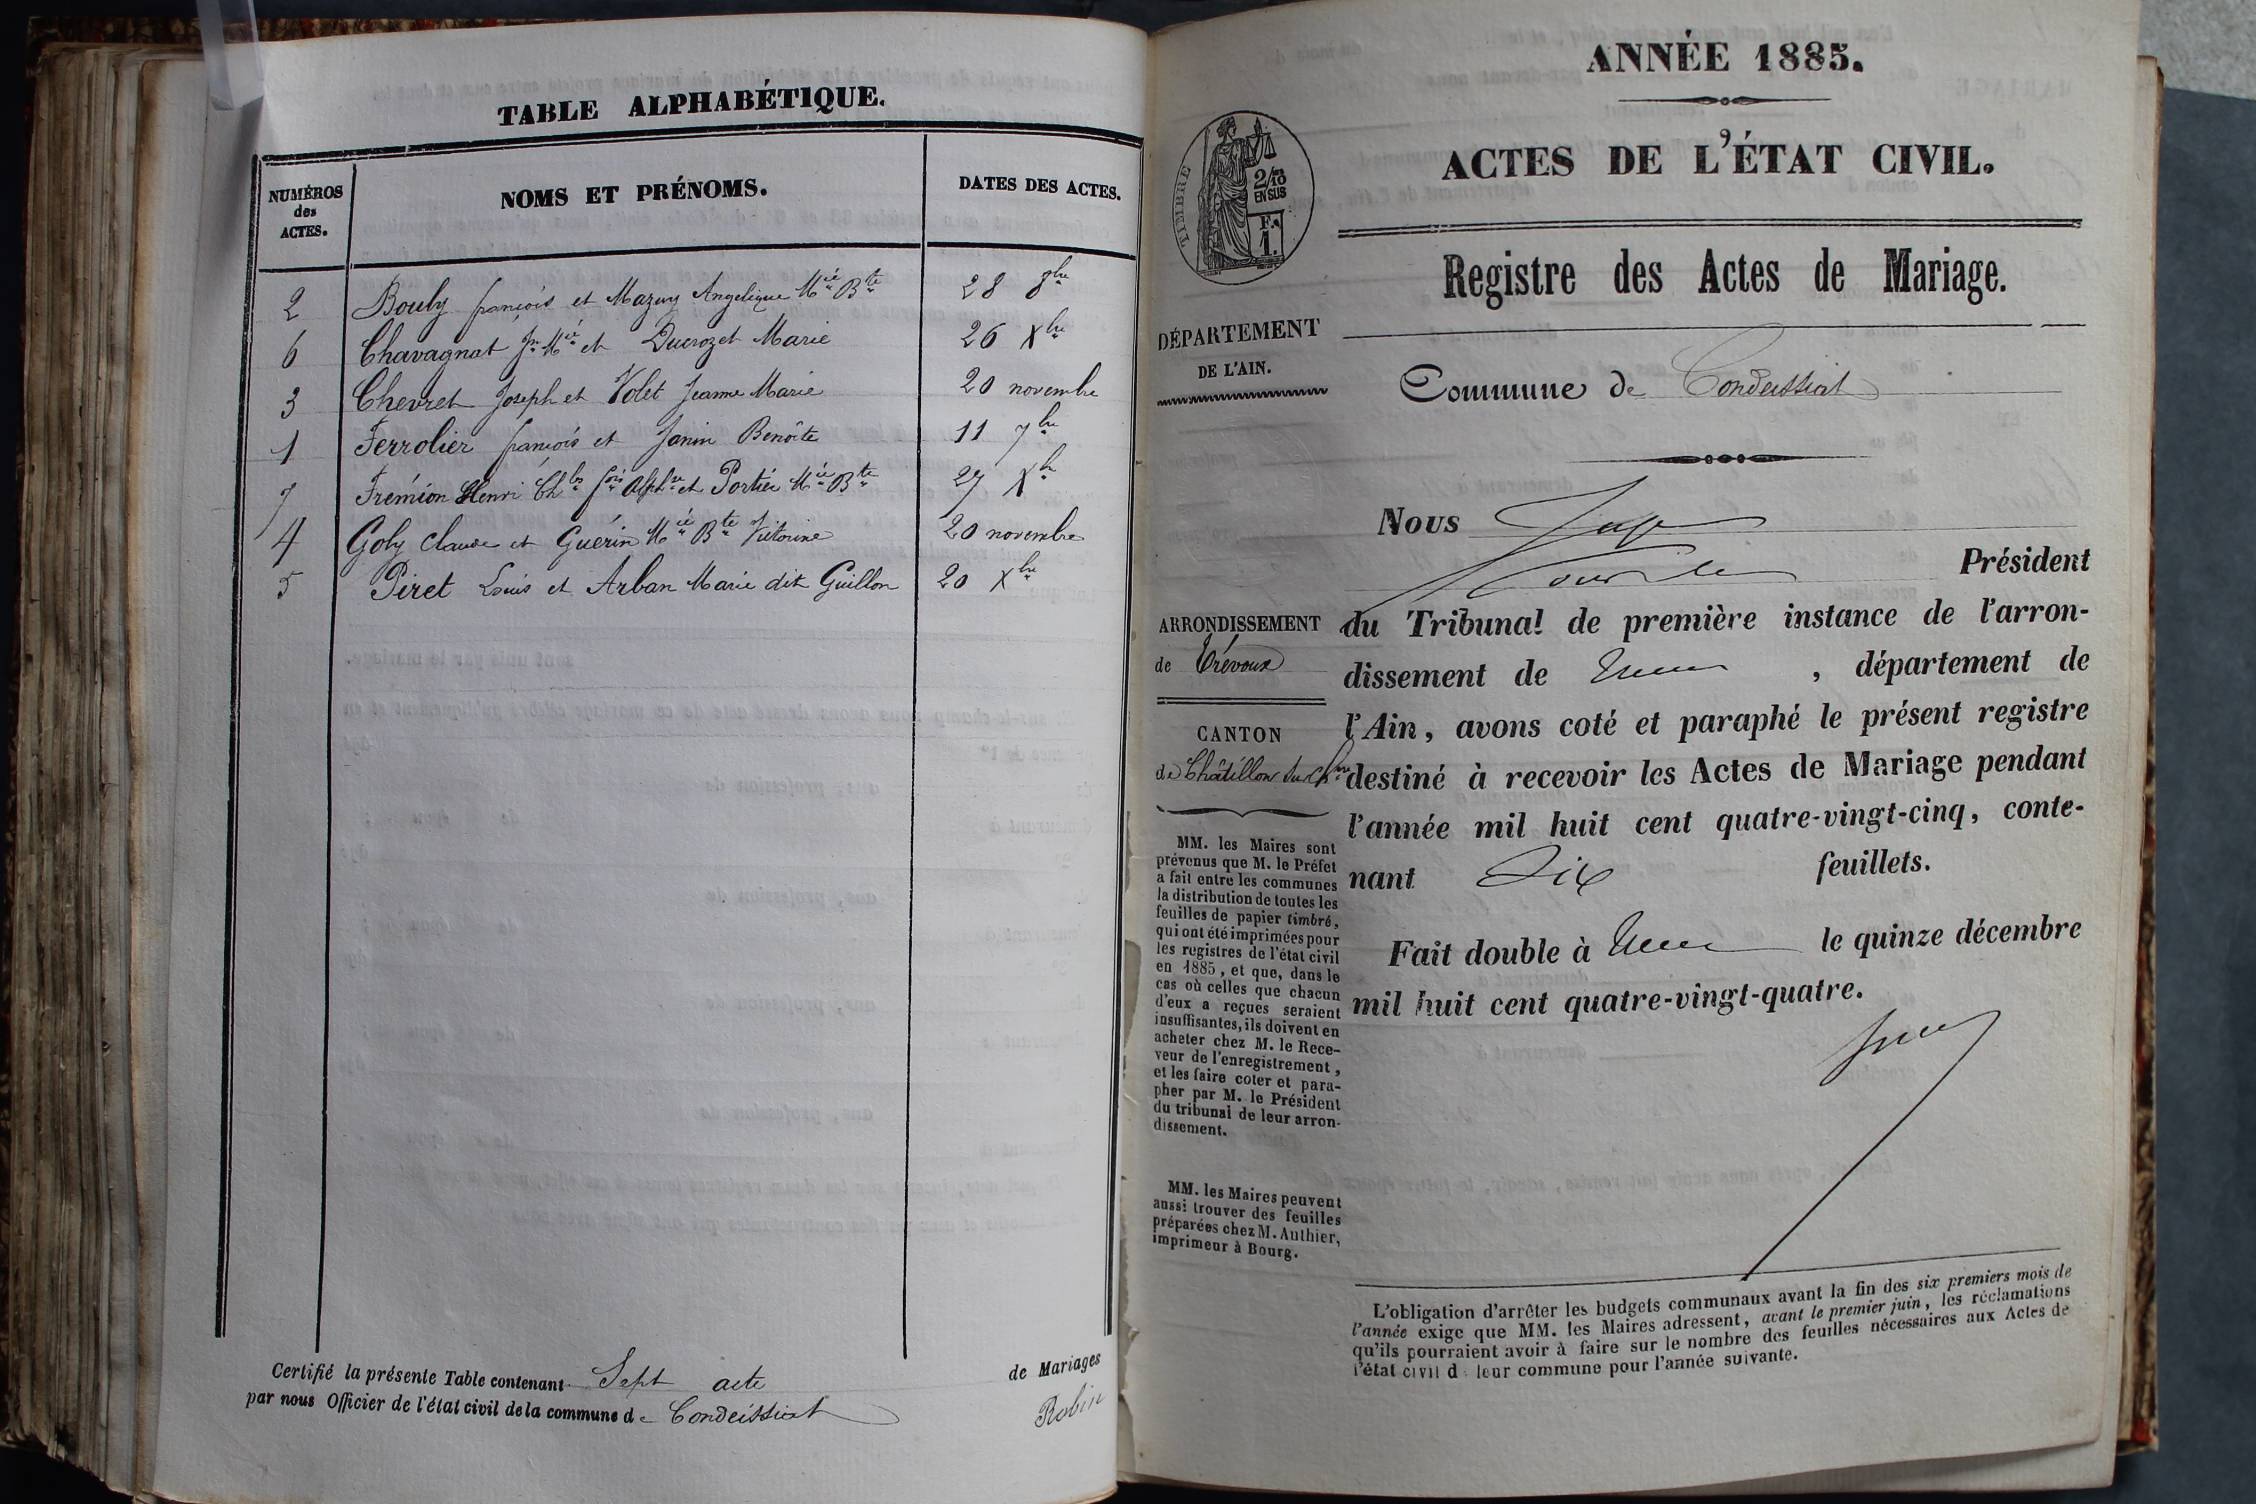 TABLE ALPHABÉTIQUE.
NUMÉROS
des
ACTES.
NOMS ET PRÉNOMS.
DATES DES ACTES.
2 Bouly françois et Mazuy Angelique Mie Bte 28 8bre
6 Chavagnat Jn Mie et Ducrozet Marie 26 Xbre
3 Chevret Joseph et Volet Jeanne Marie 20 novembre
1 Ferrolier françois et Janin Benoîte 11 7bre
7 Frémion Henri Chles fois Alphse et Portier Mie Bte 27 Xbre
4 Goly Claude et Guérin Mie Bte Victorine 20 novembre
5 Piret Louis et Arban Marie dit Guillon 20 Xbre
Certifié la présente Table contenant Sept acte de Mariages
par nous Officier de l'état civil de la commune de Condeissiat
Robin
ANNÉE 1885.
ACTES DE L'ÉTAT CIVIL.
TIMBRE
2/10
EN SUS
F.
1.
Registre des Actes de Mariage.
DÉPARTEMENT
DE L'AIN.
Commune de Condeissiat
Nous
Président
du Tribunal de première instance de l'arron-
dissement de , département de
l'Ain, avons coté et paraphé le présent registre
destiné à recevoir les Actes de Mariage pendant
l'année mil huit cent quatre-vingt-cinq, conte-
nant Six feuillets.
Fait double à le quinze décembre
mil huit cent quatre-vingt-quatre.
ARRONDISSEMENT
de Trévoux
CANTON
de Châtillon sur Chne
MM. les Maires sont
prévenus que M. le Préfet
a fait entre les communes
la distribution de toutes les
feuilles de papier timbré,
qui ont été imprimées pour
les registres de l'état civil
en 1885, et que, dans le
cas où celles que chacun
d'eux a reçues seraient
insuffisantes, ils doivent en
acheter chez M. le Rece-
veur de l'enregistrement,
et les faire coter et para-
pher par M. le Président
du tribunal de leur arron-
dissement.
MM. les Maires peuvent
aussi trouver des feuilles
préparées chez M. Authier,
imprimeur à Bourg.
L'obligation d'arrêter les budgets communaux avant la fin des six premiers mois de
l'année exige que MM. les Maires adressent, avant le premier juin, les réclamations
qu'ils pourraient avoir à faire sur le nombre des feuilles nécessaires aux Actes de
l'état civil d leur commune pour l'année suivante.